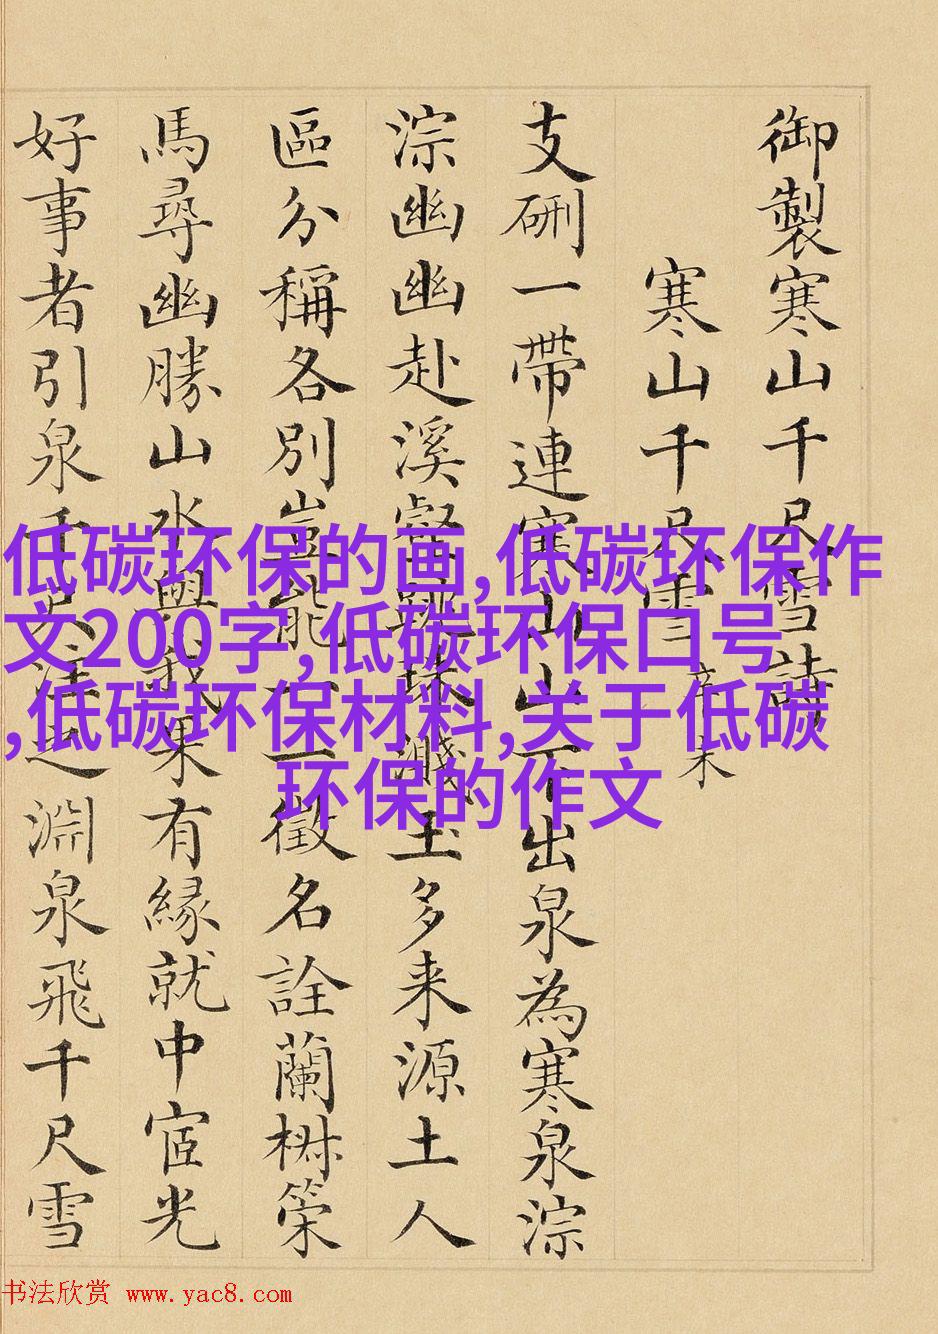 御製寒山千尺雪詩
寒山千尺雪 辛未
支硎一帶連寒山山下出泉為寒泉淙
淙幽幽赴溪壑跳珠濺玉多来源土人
區分稱各別豈能一一徵名詮蘭策
馬尋幽勝山水與我果有緣就中宧光
好事者引泉千尺注之淵泉飛千尺雪
低碳环保的画,低碳环保作
文200字,低碳环保口号
,低碳环保材料,关于低碳
环保的作文
书法欣赏 www.yac8.com